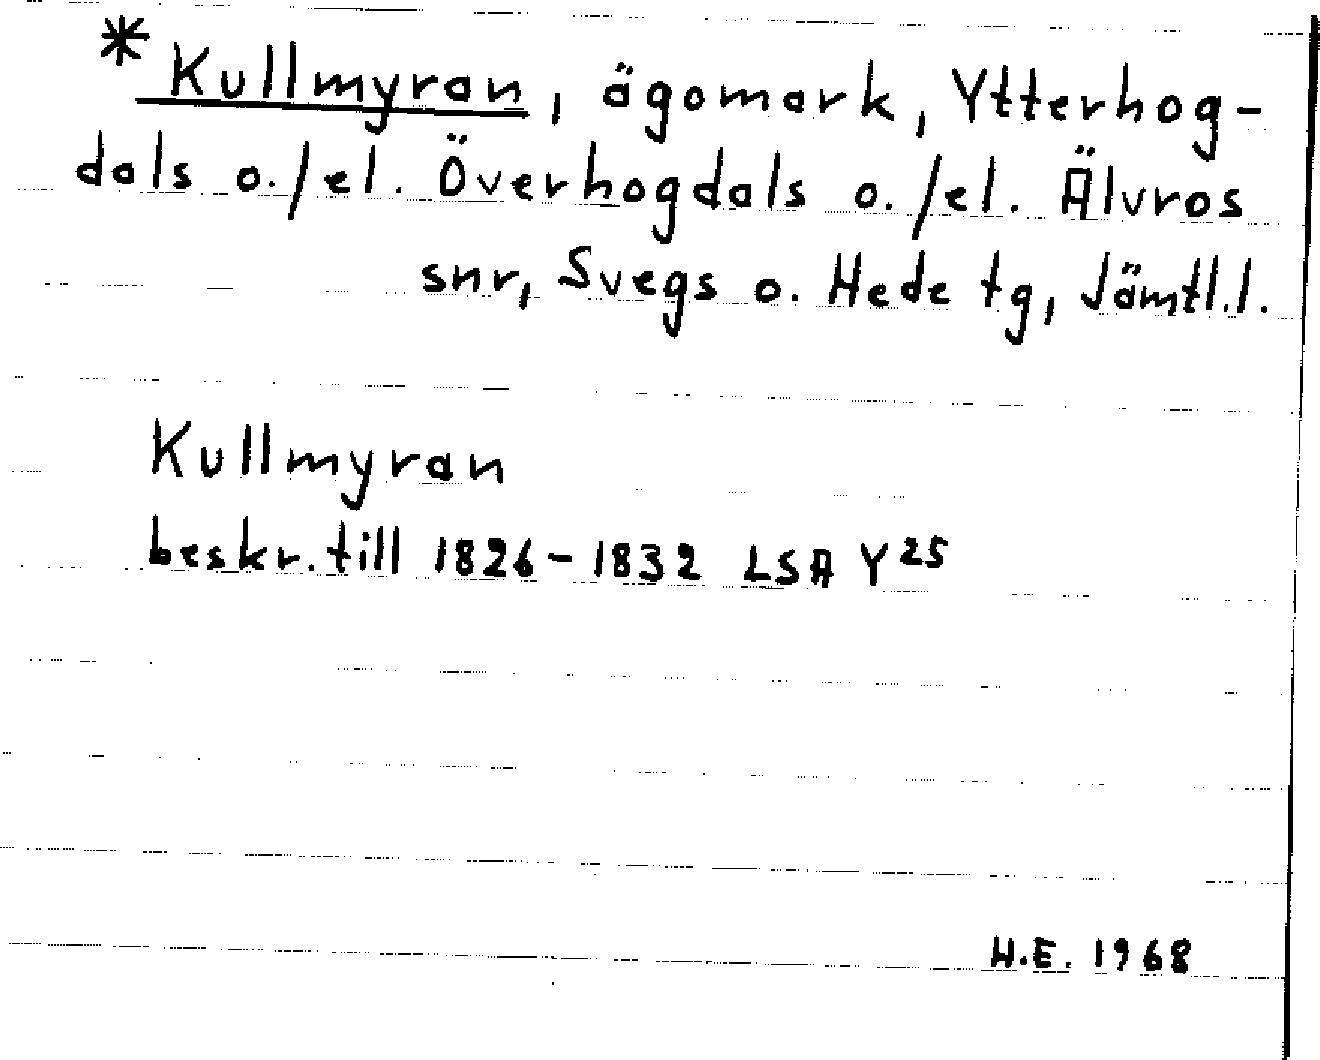 * Kullmyran, ägomark, Ytterhog-
dals o./el. Överhogdals o./el. Älvros
snr, Svegs o. Hede tg, Jämtl.l.
Kullmyran
beskr. till 1826-1832 LSA Y25
H.E. 1968